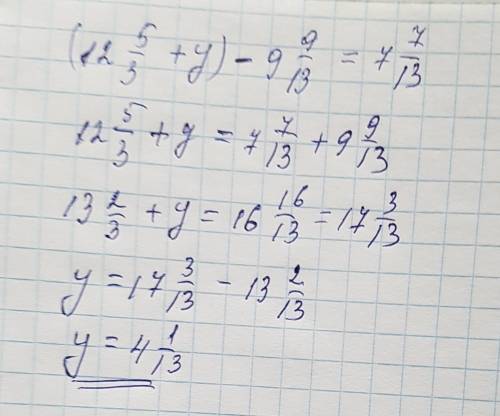 (12 5/3 + y) - 9 9/13 = 7 7/13
12 5/3 + y = 7 7/13 + 9 9/13
13 2/3 + y = 16 16/13 = 17 3/13
y = 17 3/13 - 13 2/13
y = 4 1/13